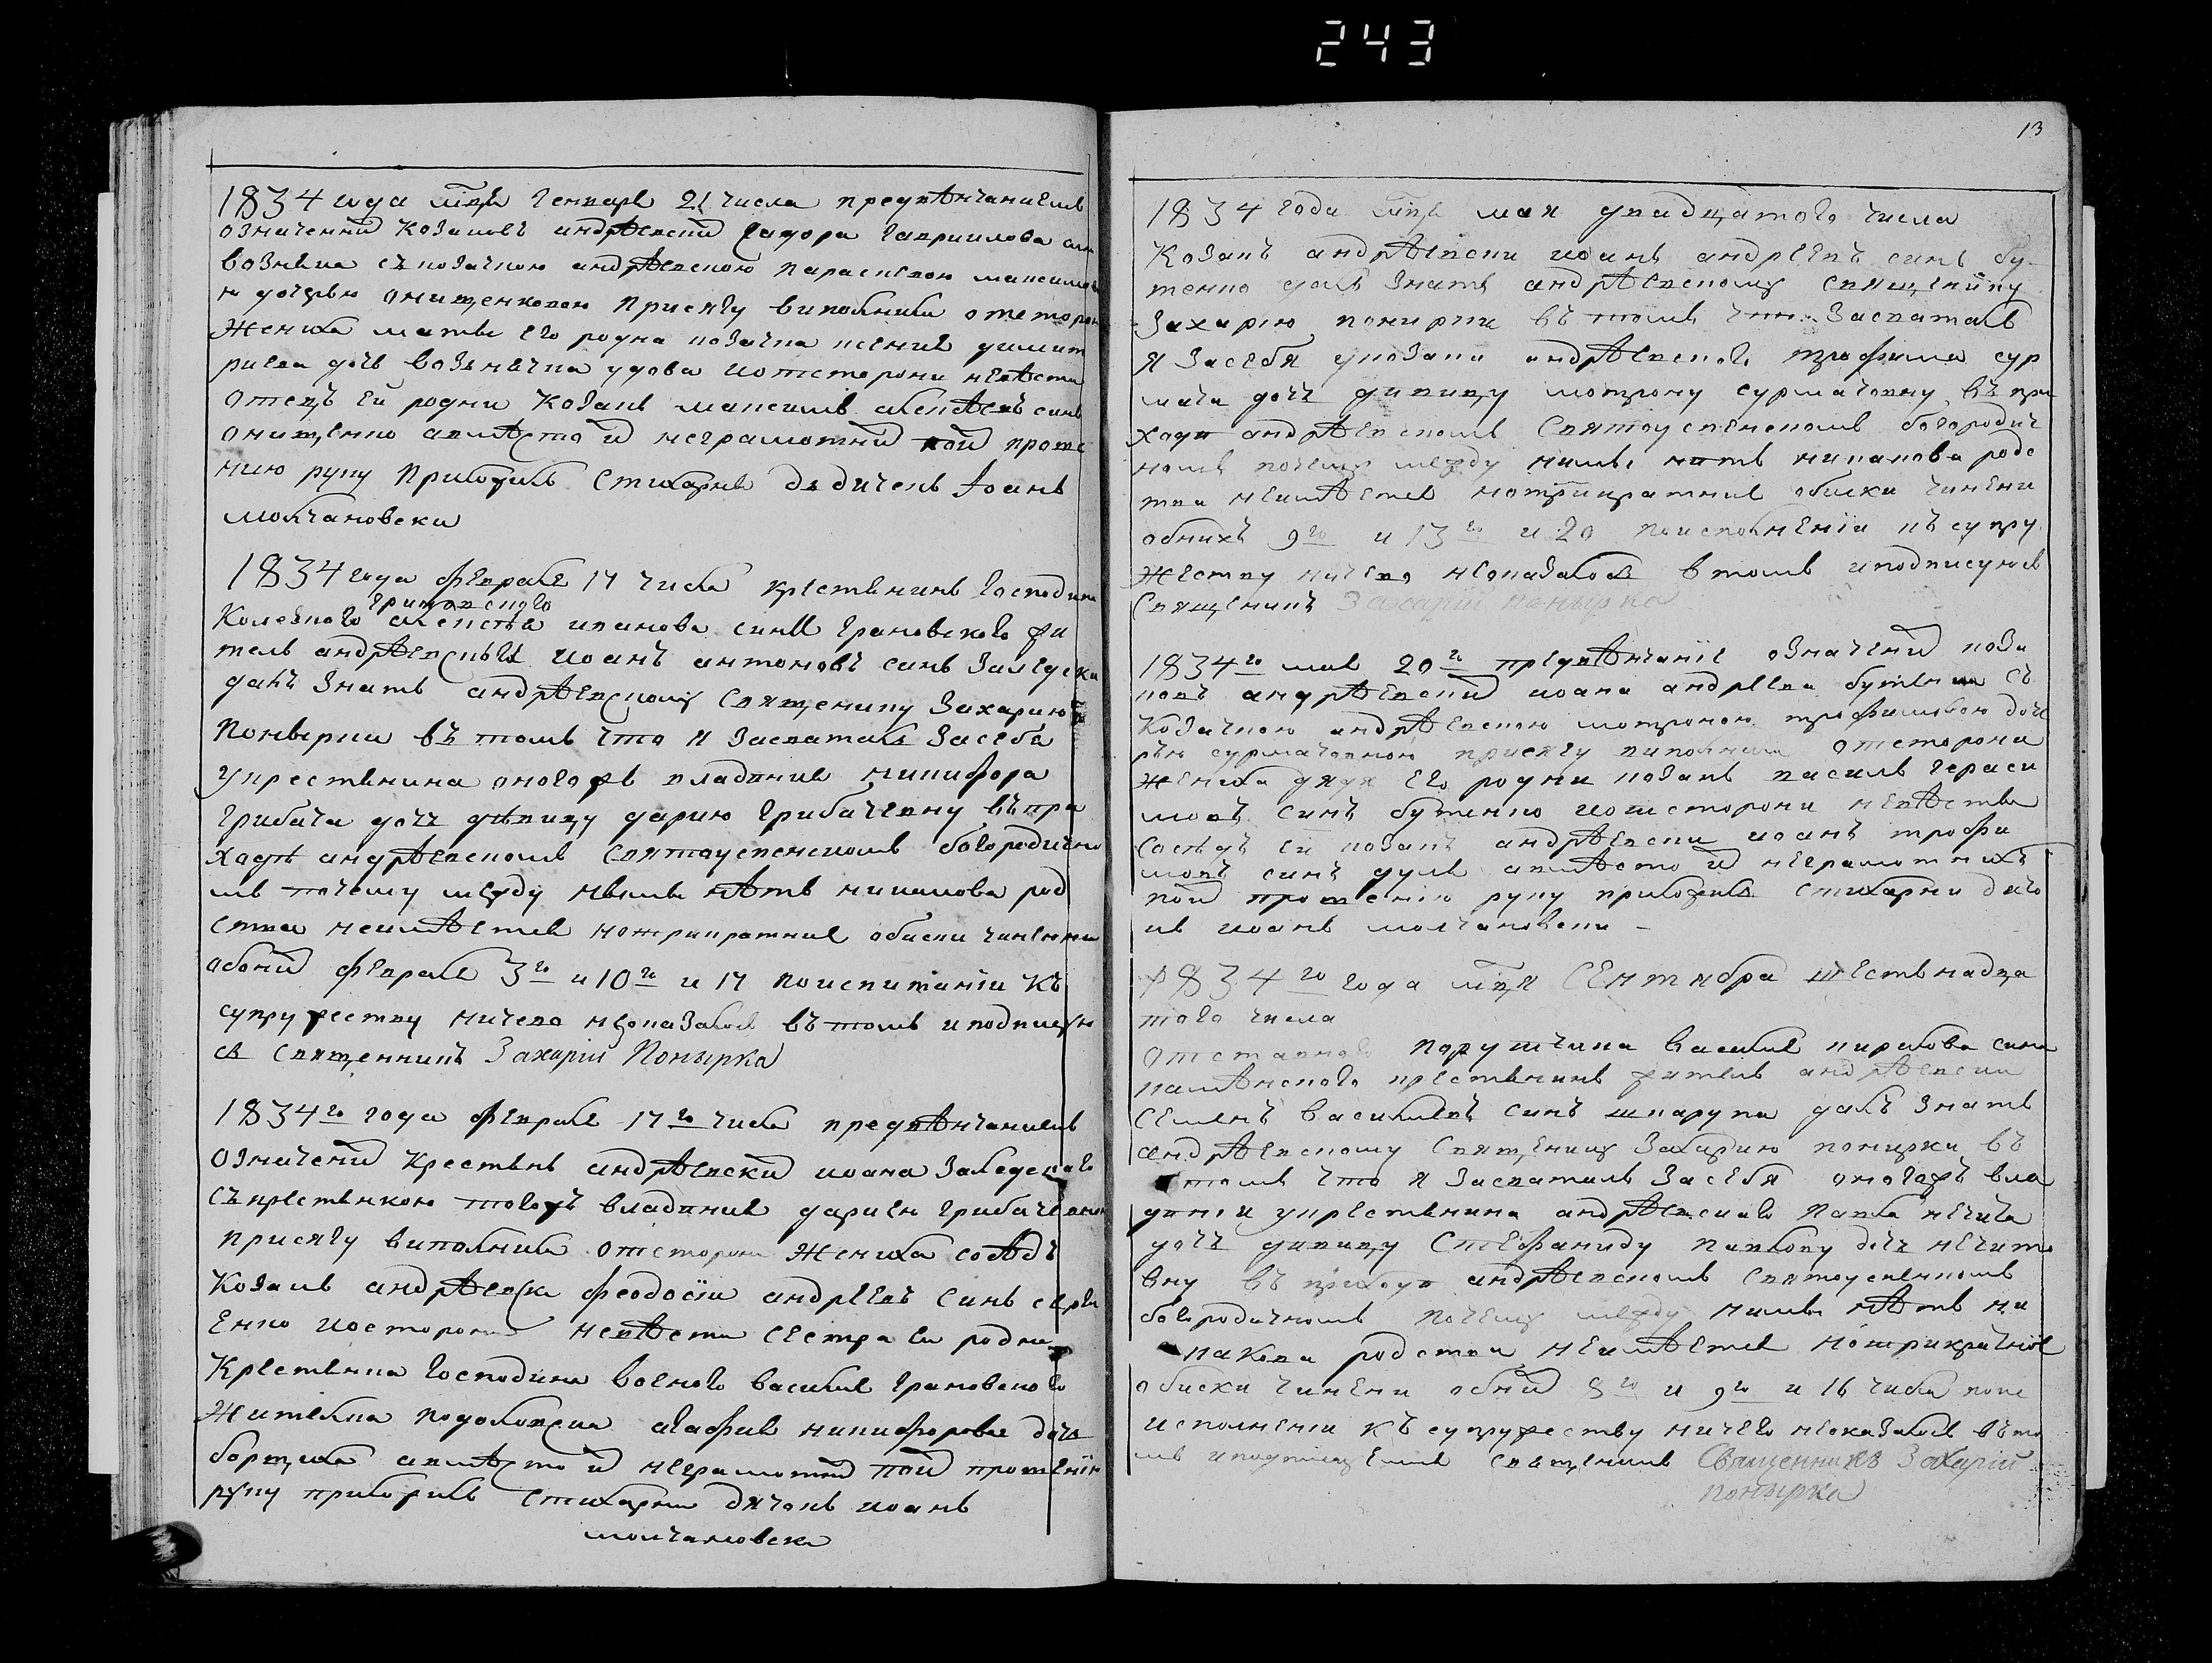 243
1834 года мця Генваря 21 числа предвѣнчаниемъ
означенний козаковъ андрѣевский Гаврилова
Вознѣка съ козачкою андрѣевскою параскевою максимов
ю дочерью онищенковою присягу виполнили отсторон
Жениха матъ его родна козачка ксения димит
риева дочъ Вознячка удова иотсторони невѣсти
Отецъ ей родни Козакъ максимъ алексѣевъ синъ
онищенко авмѣсто й неграмотний кой проше
нию руку приложилъ Стихарни дьячокъ Иоанъ
молчановски
1834 года февраля 17 числа крестянинъ Господина
Грановского
Колежного алексѣя иванова сина Грановского жи
тель андрѣевский иоанъ антоновъ синъ Заледски
далъ знать андрѣевскому Священику Захарию
Понырки въ томъ что я засваталъ засебя
укрестянина оногожъ владѣния никифора
Грибача дочъ дѣвицу дарию Грибачевну въпри
ходѣ андрѣевскомъ Святоуспенскомъ богородично
мъ почему между нами нѣтъ никакова род
ства неимѣется нотрикратние обиски чинении
обоний февраля 3го и 10го и 17 поиспитании къ
супружеству ничево непоказалось въ томъ иподписую
ся Священникъ Захарий Понырка
1834го года февраля 17го числа предвѣнчаниемъ
означений крестянъ андрѣевский иоана Заледского
съ крестянкою тогожъ владѣния дариею Грибачевною
присягу виполнили отсторони Жениха сосѣдъ
Козакъ андрѣевски феодосии андреевъ синъ серги
енко иосторони невѣсти сестра еи родна
Крестянка Господина Военого Василия Грановского
Жителка подоловска агафия никифорова дочъ
борщика авмѣсто й неграмотной кой прошенію
руку приложилъ Стихарни дячокъ иоанъ
молчановски
13
1834 года мця мая двадцатого числа
Козакъ андрѣевски иоанъ андреевъ синъ бу
тенко далъ знать андрѣевскому Священику
Захарию понирки въ томъ что засваталъ
я засебя укозака андрѣевского трофима сур
мача дочъ дивицу мотрону сурмачовну въ при
ходи андрѣевскомъ Святоуспенскомъ богородич
номъ почему между ними нитъ никакова родс
тва неимѣется нотрикратние обиски чинени
обнихъ 9го и 13го и 20 поисполнении къ супру
жеству ничево непоказалось втомъ иподписуюсь
Священикъ Захарий Понырка
1834го мая 20го предвѣнчание означений коза
ковъ андрѣевский иоана андреева бутенка съ
Козачкою андрѣевскою мотроною трофимовою доче
рью сурмачовною присягу виполнили отсторони
Жениха дядя его родни козакъ василь гераси
мовъ синъ бутенко иотсторони невѣсти
сосѣдъ ей козакъ андрѣевски иоанъ трофи
мовъ синъ дуля авмѣсто й неграмотнихъ
кой прошению руку приложилъ Стихарни дячо
къ иоанъ молчановски
1834го года мця Сентября шестьнадца
того числа
Отставного порутчика Василия кирилова сина
каменского крестянинъ житель андрѣевски
Семенъ Василиевъ синъ шкарупа далъ знать
андрѣевскому Священику Захарию понирки въ
томъ что я засваталъ засебя оногожъ вла
дѣния укрестянина андрѣевского Павла нечита
дочъ дивицу Стефаниду Павлову дочъ нечита
вну въ приходи андрѣевскомъ Святоуспенкомъ
богородичномъ почему между ними нѣтъ ни
какова родства неимѣется нотрикрачние
обиски чинени обний 8го и 9го и 16 числа поис
исполнении къ супружеству ничего непоказалось въто
мъ Священикъ Священникъ Захарий
Понырка